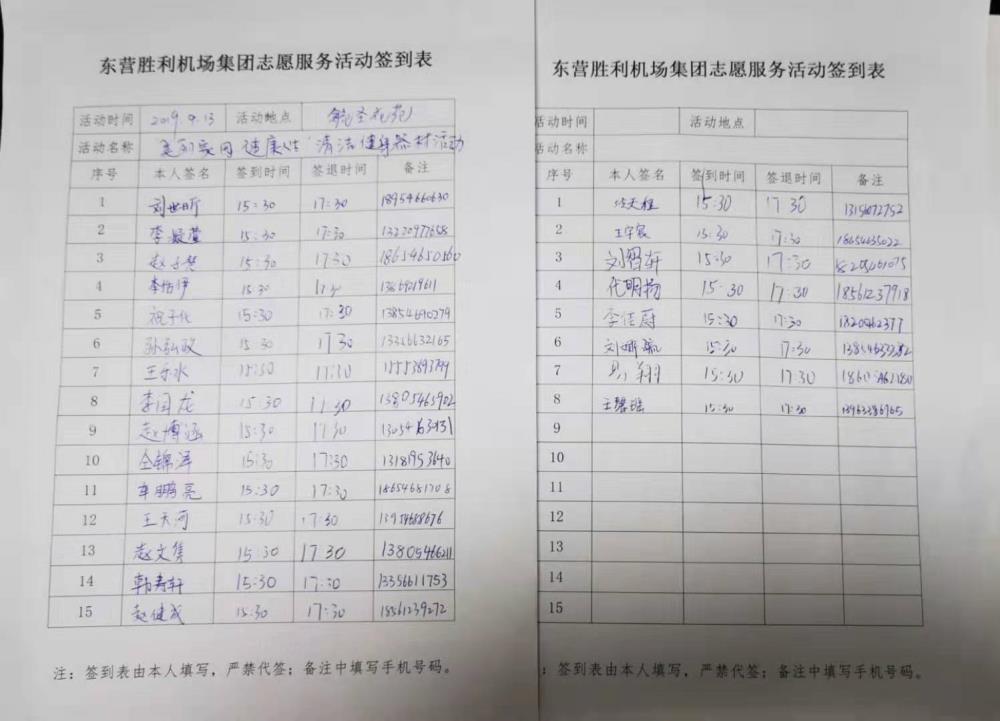 东营胜利机场集团志愿服务活动签到表
活动时间 2019.9.13 活动地点
活动名称 清洁健身器材活动
序号 本人签名 签到时间 签退时间 备注
1 刘世昕 15:30 17:30 18954660630
2 李凝萱 15:30 17:30
3 15:30 17:30 18654650160
4 李怡伊 15:30 17:30
5 祝子化 15:30 17:30 13854690279
6 孙弘政 15:30 17:30 13366632165
7 王乐水 15:30 17:30
8 李国龙 15:30 17:30 13805465902
9 赵博涵 15:30 17:30
10 仝锦泽 15:30 17:30 13181953640
11 车鹏亮 15:30 17:30 18654681708
12 王天河 15:30 17:30
13 赵文隽 15:30 17 30 13805466211
14 韩寿轩 15:30 17:30 13356611753
15 赵健成 15:30 17:30 18561239272
注：签到表由本人填写，严禁代签；备注中填写手机号码。
东营胜利机场集团志愿服务活动签到表
活动时间 活动地点
活动名称
序号 本人签名 签到时间 签退时间 备注
1 15:30 17 30
2 王宇宸 15:30 17:30 18654635022
3 刘智轩 15:30 17:30
4 代明扬 15:30 17:30 18561237918
5 李佳蔚 15:30 17:30
6 15:30 17:30
7 15:30 17:30
8 王馨瑶 15:30 17:30 13963386965
9
10
11
12
13
14
15
：签到表由本人填写，严禁代签；备注中填写手机号码。